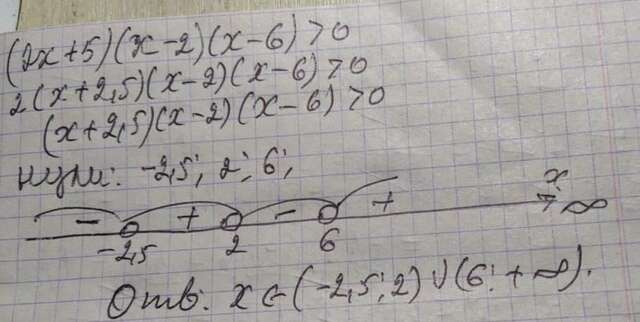 (2x+5)(x-2)(x-6)>0
2(x+2,5)(x-2)(x-6)>0
(x+2,5)(x-2)(x-6)>0
нули: -2,5; 2; 6;
- + - + x
-2,5 2 6 ∞
Отв: x∈(-2,5;2)∪(6;+∞).